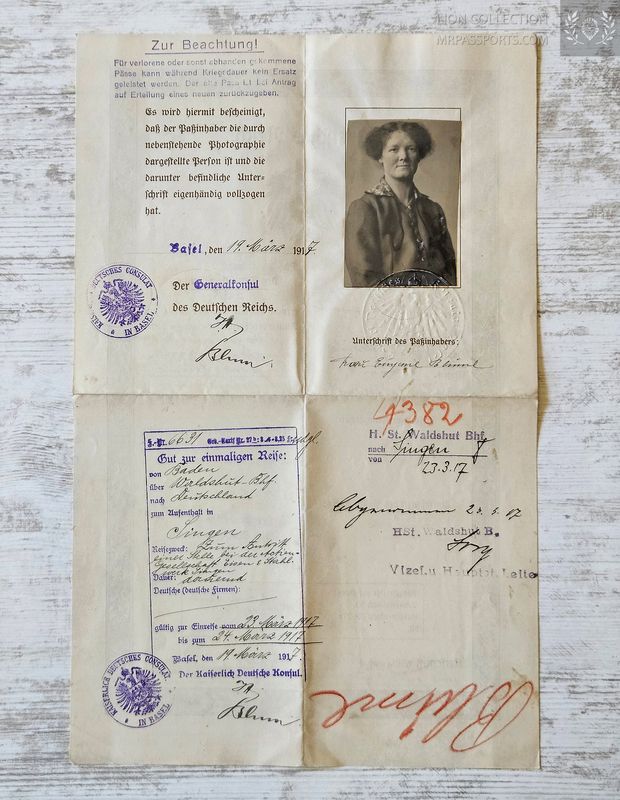 LION COLLECTION
MRPASSPORTS.COM
Zur Beachtung!
Für verlorene oder sonst abhanden gekommene
Pässe kann während Kriegsdauer kein Ersatz
geleistet werden. Der alte Pass ist bei Antrag
auf Erteilung eines neuen zurückzugeben.
Es wird hiermit bescheinigt,
daß der Paßinhaber die durch
nebenstehende Photographie
dargestellte Person ist und die
darunter befindliche Unter-
schrift eigenhändig vollzogen
hat.
Basel, den 19. März 1917.
Der Generalkonsul
des Deutschen Reichs.
KAISERLICH DEUTSCHES CONSULAT
IN BASEL
Unterschrift des Paßinhabers:
Frau Eugenie
J.-Nr. 6691
Gut zur einmaligen Reise:
von Baden
über Waldshut-Bhf.
nach Deutschland
zum Aufenthalt in
Singen
Reisezweck: Zum Antritt
einer Stelle bei der Actien-
Gesellschaft Eisen & Stahl-
werk Singen
Dauer: dauernd
Deutsche (deutsche Firmen):
gültig zur Einreise vom 23. März 1917
bis zum 24. März 1917
Basel, den 19 März 1917.
Der Kaiserlich Deutsche Konsul.
KAISERLICH DEUTSCHES CONSULAT
IN BASEL
4382
H. St. Waldshut Bhf.
nach Singen
von
23.3.17
HSt. Waldshut B.
Vizef. u Hauptst. Leite